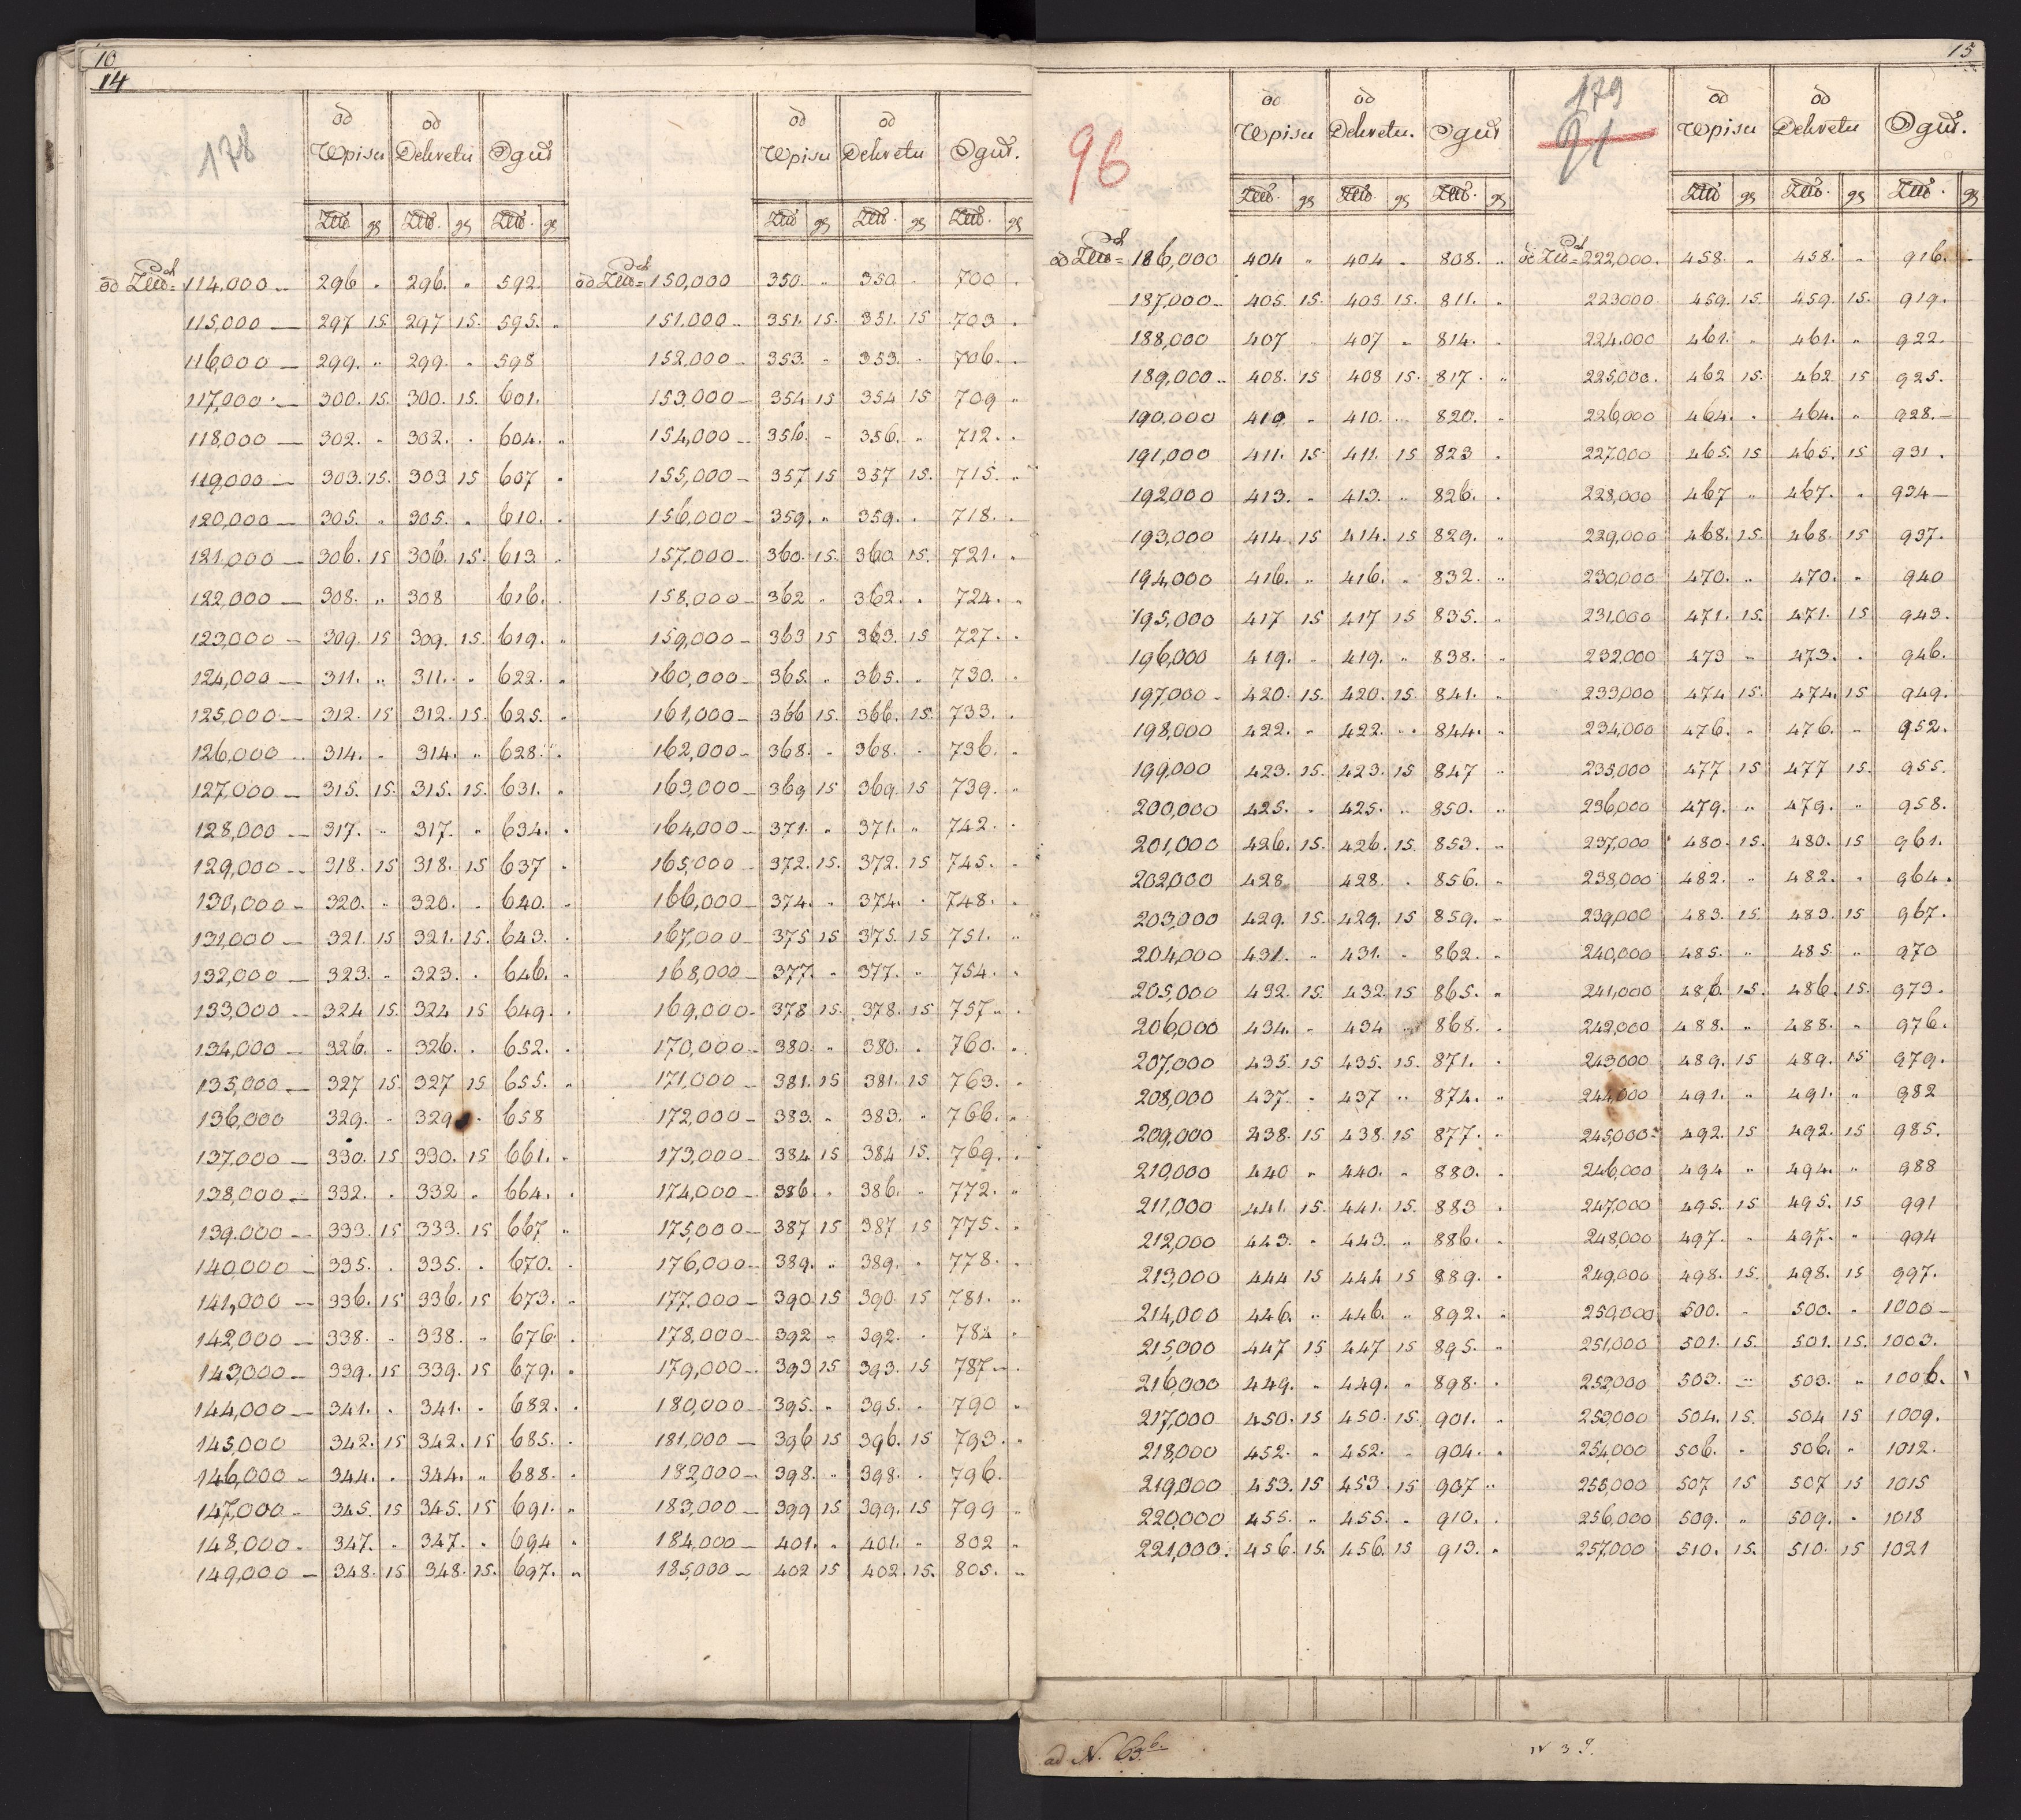 10
14
178
od Wpisu od Dekretu Oguł
od Wpisu od Dekretu Oguł.
Złłů gr Złłů. gr Złłů. gr
Złłů gr Złłů. gr Złłů. gr
od Złłů = 114,000 — 296 „ 296. „ 592
115,000 — 297 15. 297 15. 595. „
116,000 — 299. „ 299. „ 598
117,000 — 300. 15. 300. 15. 601.
118,000 — 302. „ 302. „ 604. „
119,000 — 303. 15. 303 15 607 „
120,000 — 305. „ 305. „ 610. „
121,000 — 306. 15 306. 15. 613 „
122,000 — 308. „ 308 616. „
123,000 — 309. 15 309. 15. 619. „
124,000 — 311. „ 311. „ 622. „
125,000 — 312. 15 312. 15. 625. „
126,000 .. 314. „ 314. „ 628. „
127,000 — 315. 15. 315. 15. 631. „
128,000 — 317. „ 317. „ 634. „
129,000 — 318. 15 318. 15 637 „
130,000 — 320. „ 320. „ 640. „
131,000 — 321. 15 321. 15. 643. „
132,000 — 323. „ 323. „ 646. „
133,000 — 324 15. 324 15 649. „
134,000 — 326. „ 326. „ 652. „
135,000 — 327 15. 327 15 655. „
136,000 329. „ 329 „ 658
137,000 — 330. 15. 330. 15 661. „
138,000 — 332. „ 332 „ 664. „
139,000 — 333. 15 333. 15 667 „
140,000 — 335. „ 335. „ 670. „
141,000 — 336. 15 336. 15 673. „
142,000 — 338. „ 338. „ 676. „
143,000 — 339. 15 339. 15 679. „
144,000 — 341. „ 341. „ 682. „
145,000 342. 15 342. 15 685. „
146,000 — 344. „ 344. „ 688. „
147,000 .. 345. 15 345. 15 691. „
148,000 — 347. „ 347. „ 694 „
149,000 — 348. 15 348. 15. 697. „
od Złłů = 150,000 350. „ 350 „ 700 „
151,000 .. 351. 15. 351. 15 703 „
152,000 — 353. „ 353. „ 706. „
153,000 — 354 15 354 15 709 „
154,000 — 356. „ 356. „ 712. „
155,000 — 357 15 357 15. 715. „
156,000 — 359. „ 359. „ 718. „
157,000 — 360. 15. 360 15. 721. „
158,000 — 362 „ 362. „ 724. „
159,000 — 363 15 363. 15 727. „
160,000 — 365. „ 365. „ 730. „
161,000 — 366 15. 366. 15. 733. „
162,000 — 368. „ 368. „ 736. „
163,000 — 369 15 369. 15 739. „
164,000 — 371. „ 371. „ 742. „
165,000 — 372. 15. 372. 15 745. „
166,000 — 374. „ 374. „ 748. „
167,000 — 375 15 375. 15 751. „
168,000 — 377. „ 377. „ 754. „
169,000 — 378 15. 378. 15 757 „
170,000 — 380. „ 380. „ 760. „
171,000 — 381. 15 381. 15 763. „
172,000 — 383. „ 383. „ 766. „
173,000 — 384 15 384 15. 769. „
174,000 — 386. „ 386. „ 772. „
175,000 — 387 15 387 15 775. „
176,000 — 389. „ 389. „ 778. „
177,000 — 390 15 390. 15 781. „
178,000 — 392 „ 392. „ 784 „
179,000 — 393 15 393. 15 787 „
180,000 — 395. „ 395. „ 790 „
181,000 — 396 15 396. 15 793. „
182,000 — 398. „ 398. „ 796.
183,000 — 399 15 399. 15 799 „
184,000 — 401. „ 401. „ 802 „
185,000 — 402 15 402. 15. 805. „
15
96
179
91
od Wpisu od Dekretu. Oguł
od Wpisu od Dekretu Oguł.
Złłů. gr Złłů. gr Złłů. gr
Złłů gr Złłů. gr Złłů. gr
od Złłů = 186,000 404 „ 404 „ 808. „
187,000 — 405. 15. 405 15. 811. „
188,000 407 „ 407 „ 814. „
189,000 .. 408. 15 408 15. 817. „
190,000 410 „ 410. „ 820. „
191,000 411. 15 411. 15 823 „
192,000 413. „ 413. „ 826. „
193,000 414. 15 414. 15 829. „
194,000 416. „ 416. „ 832. „
195,000 417 15 417 15 835. „
196,000 419. „ 419. „ 838. „
197,000 — 420. 15. 420. 15. 841. „
198,000 422. „ 422. „ 844. „
199,000 423. 15. 423. 15 847 „
200,000 425. „ 425. „ 850. „
201,000 426. 15. 426. 15. 853. „
202,000 428 428. „ 856. „
203,000 429. 15. 429. 15 859. „
204,000 431. „ 431. „ 862. „
205,000 432. 15. 432. 15 865. „
206,000 434. „ 434 „ 868. „
207,000 435. 15 435. 15. 871. „
208,000 437. „ 437 „ 874. „
209,000 438. 15 438. 15 877. „
210,000 440 „ 440. „ 880. „
211,000 441. 15. 441. 15. 883 „
212,000 443. „ 443. „ 886. „
213,000 444 15 444 15 889. „
214,000 446. „ 446. „ 892. „
215,000 447 15 447 15 895. „
216,000 449. „ 449. „ 898. „
217,000 450. 15 450. 15. 901. „
218,000 452. „ 452. „ 904. „
219,000 453. 15 453. 15 907 „
220,000 455. „ 455. „ 910. „
221,000. 456. 15. 456. 15 913. „
od Złłů = 222,000. 458. „ 458. „ 916. —
223000 459. 15. 459. 15. 919.
224,000 461. „ 461. „ 922.
225,000. 462 15. 462 15 925.
226,000 464. „ 464. „ 928. —
227,000 465. 15 465. 15 931.
228,000 467 „ 467. „ 934 —
229,000 468. 15. 468. 15 937.
230,000 470. „ 470. „ 940
231,000 471. 15. 471. 15 943.
232,000 473 „ 473. „ 946.
233,000 474 15. 474. 15 949.
234,000 476. „ 476. „ 952.
235,000 477 15 477 15. 955.
236,000 479. „ 479. „ 958.
237,000 480. 15. 480. 15 961.
238,000 482. „ 482. „ 964.
239,000 483. 15. 483. 15 967.
240,000 485. „ 485 „ 970
241,000 486. 15. 486. 15. 973.
242,000 488. „ 488. „ 976.
243,000 489. 15 489. 15 979.
244,000 491. „ 491. „ 982
245,000 492. 15 492. 15 985.
246,000 494 „ 494. „ 988
247,000 495. 15 495. 15 991
248,000 497. „ 497. „ 994
249,000 498. 15. 498. 15 997.
250,000 500. „ 500. „ 1000 —
251,000 501. 15. 501. 15. 1003.
252,000 503. — 503. „ 1006.
253,000 504. 15. 504 15 1009.
254,000 506. „ 506. „ 1012.
255,000 507 15 507 15 1015
256,000 509. „ 509. „ 1018
257,000 510. 15. 510. 15 1021
ad N. 63.b.
N 39.